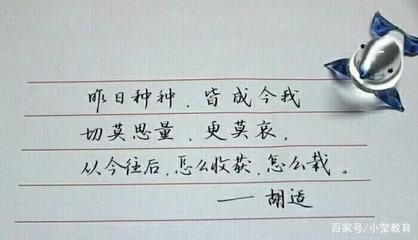 昨日种种，皆成今我
切莫思量，更莫哀，
从今往后，怎么收获，怎么栽。
——胡适
百家号/小莹教育